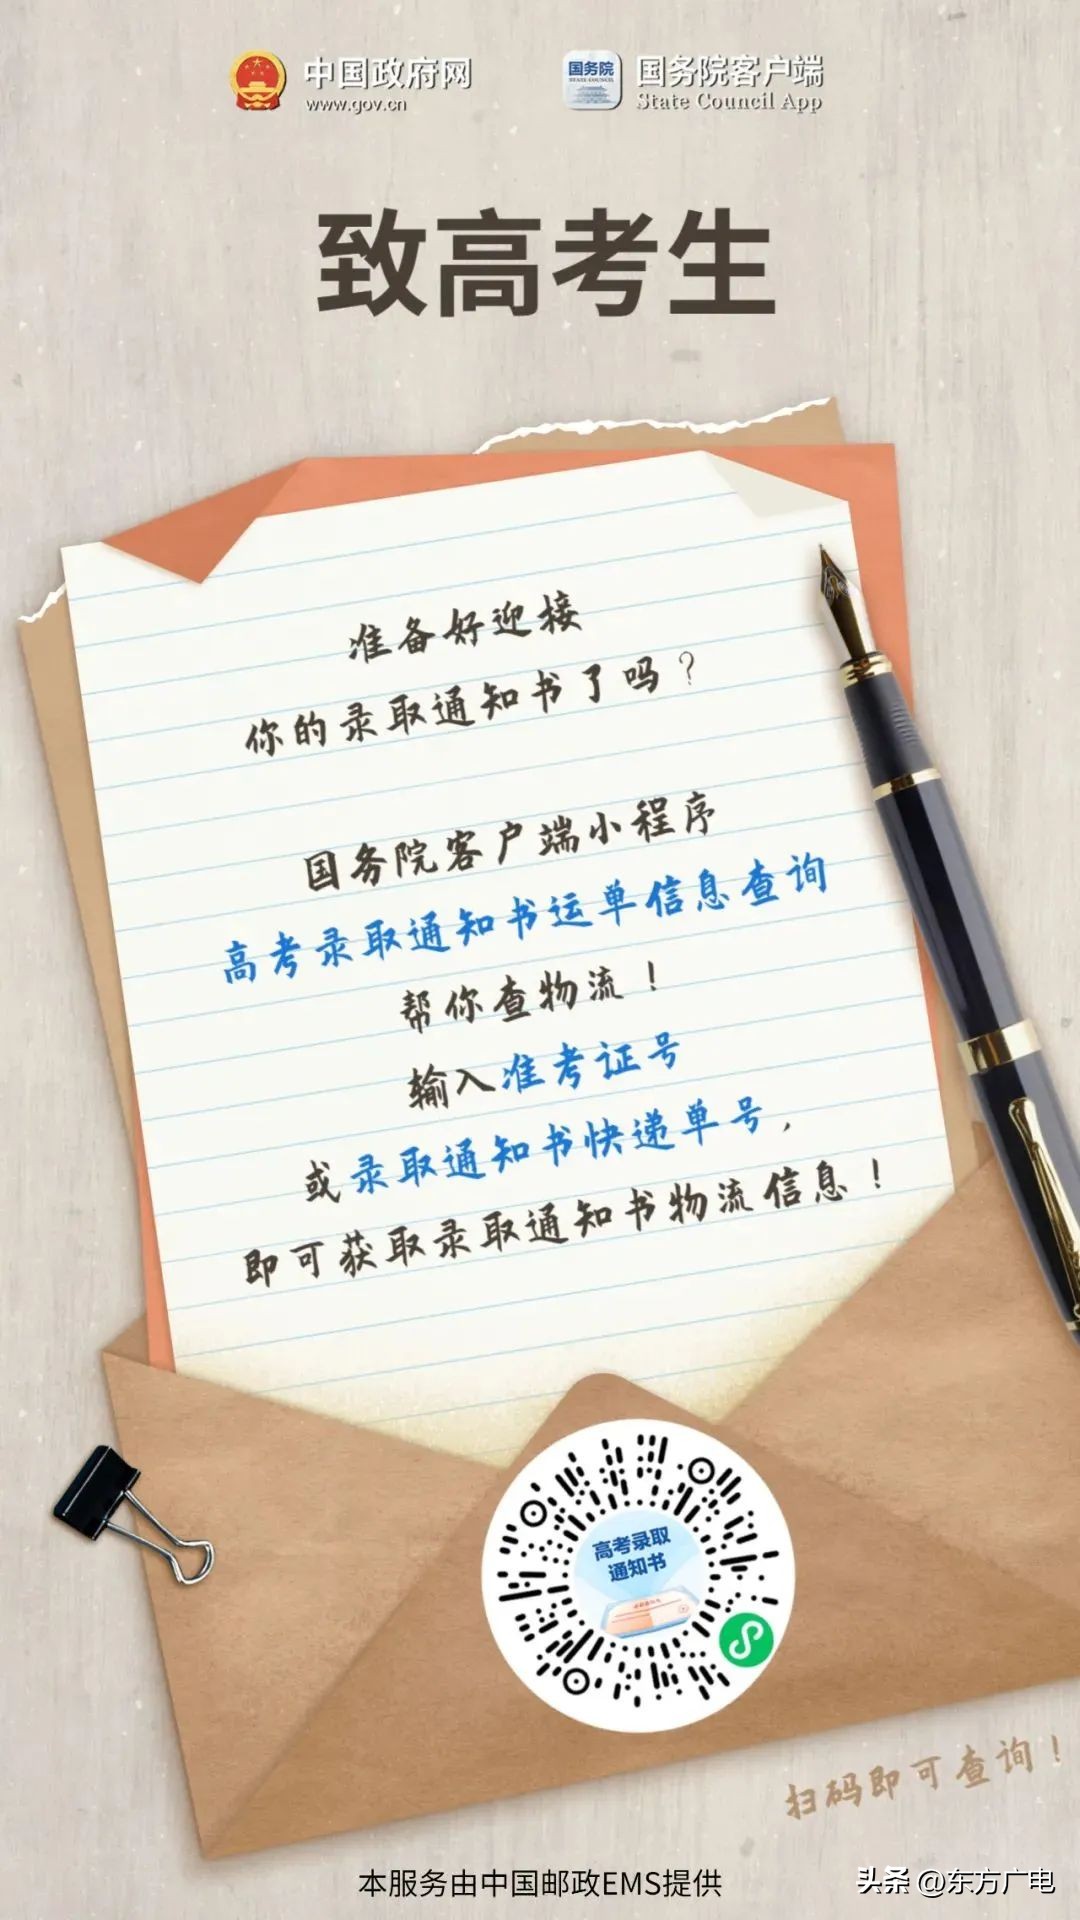 中国政府网
www.gov.cn
国务院
STATE COUNCIL
国务院客户端
State Council App
致高考生
准备好迎接
你的录取通知书了吗？
国务院客户端小程序
高考录取通知书运单信息查询
帮你查物流！
输入准考证号
或录取通知书快递单号，
即可获取录取通知书物流信息！
高考录取
通知书
扫码即可查询！
本服务由中国邮政EMS提供
头条 @东方广电